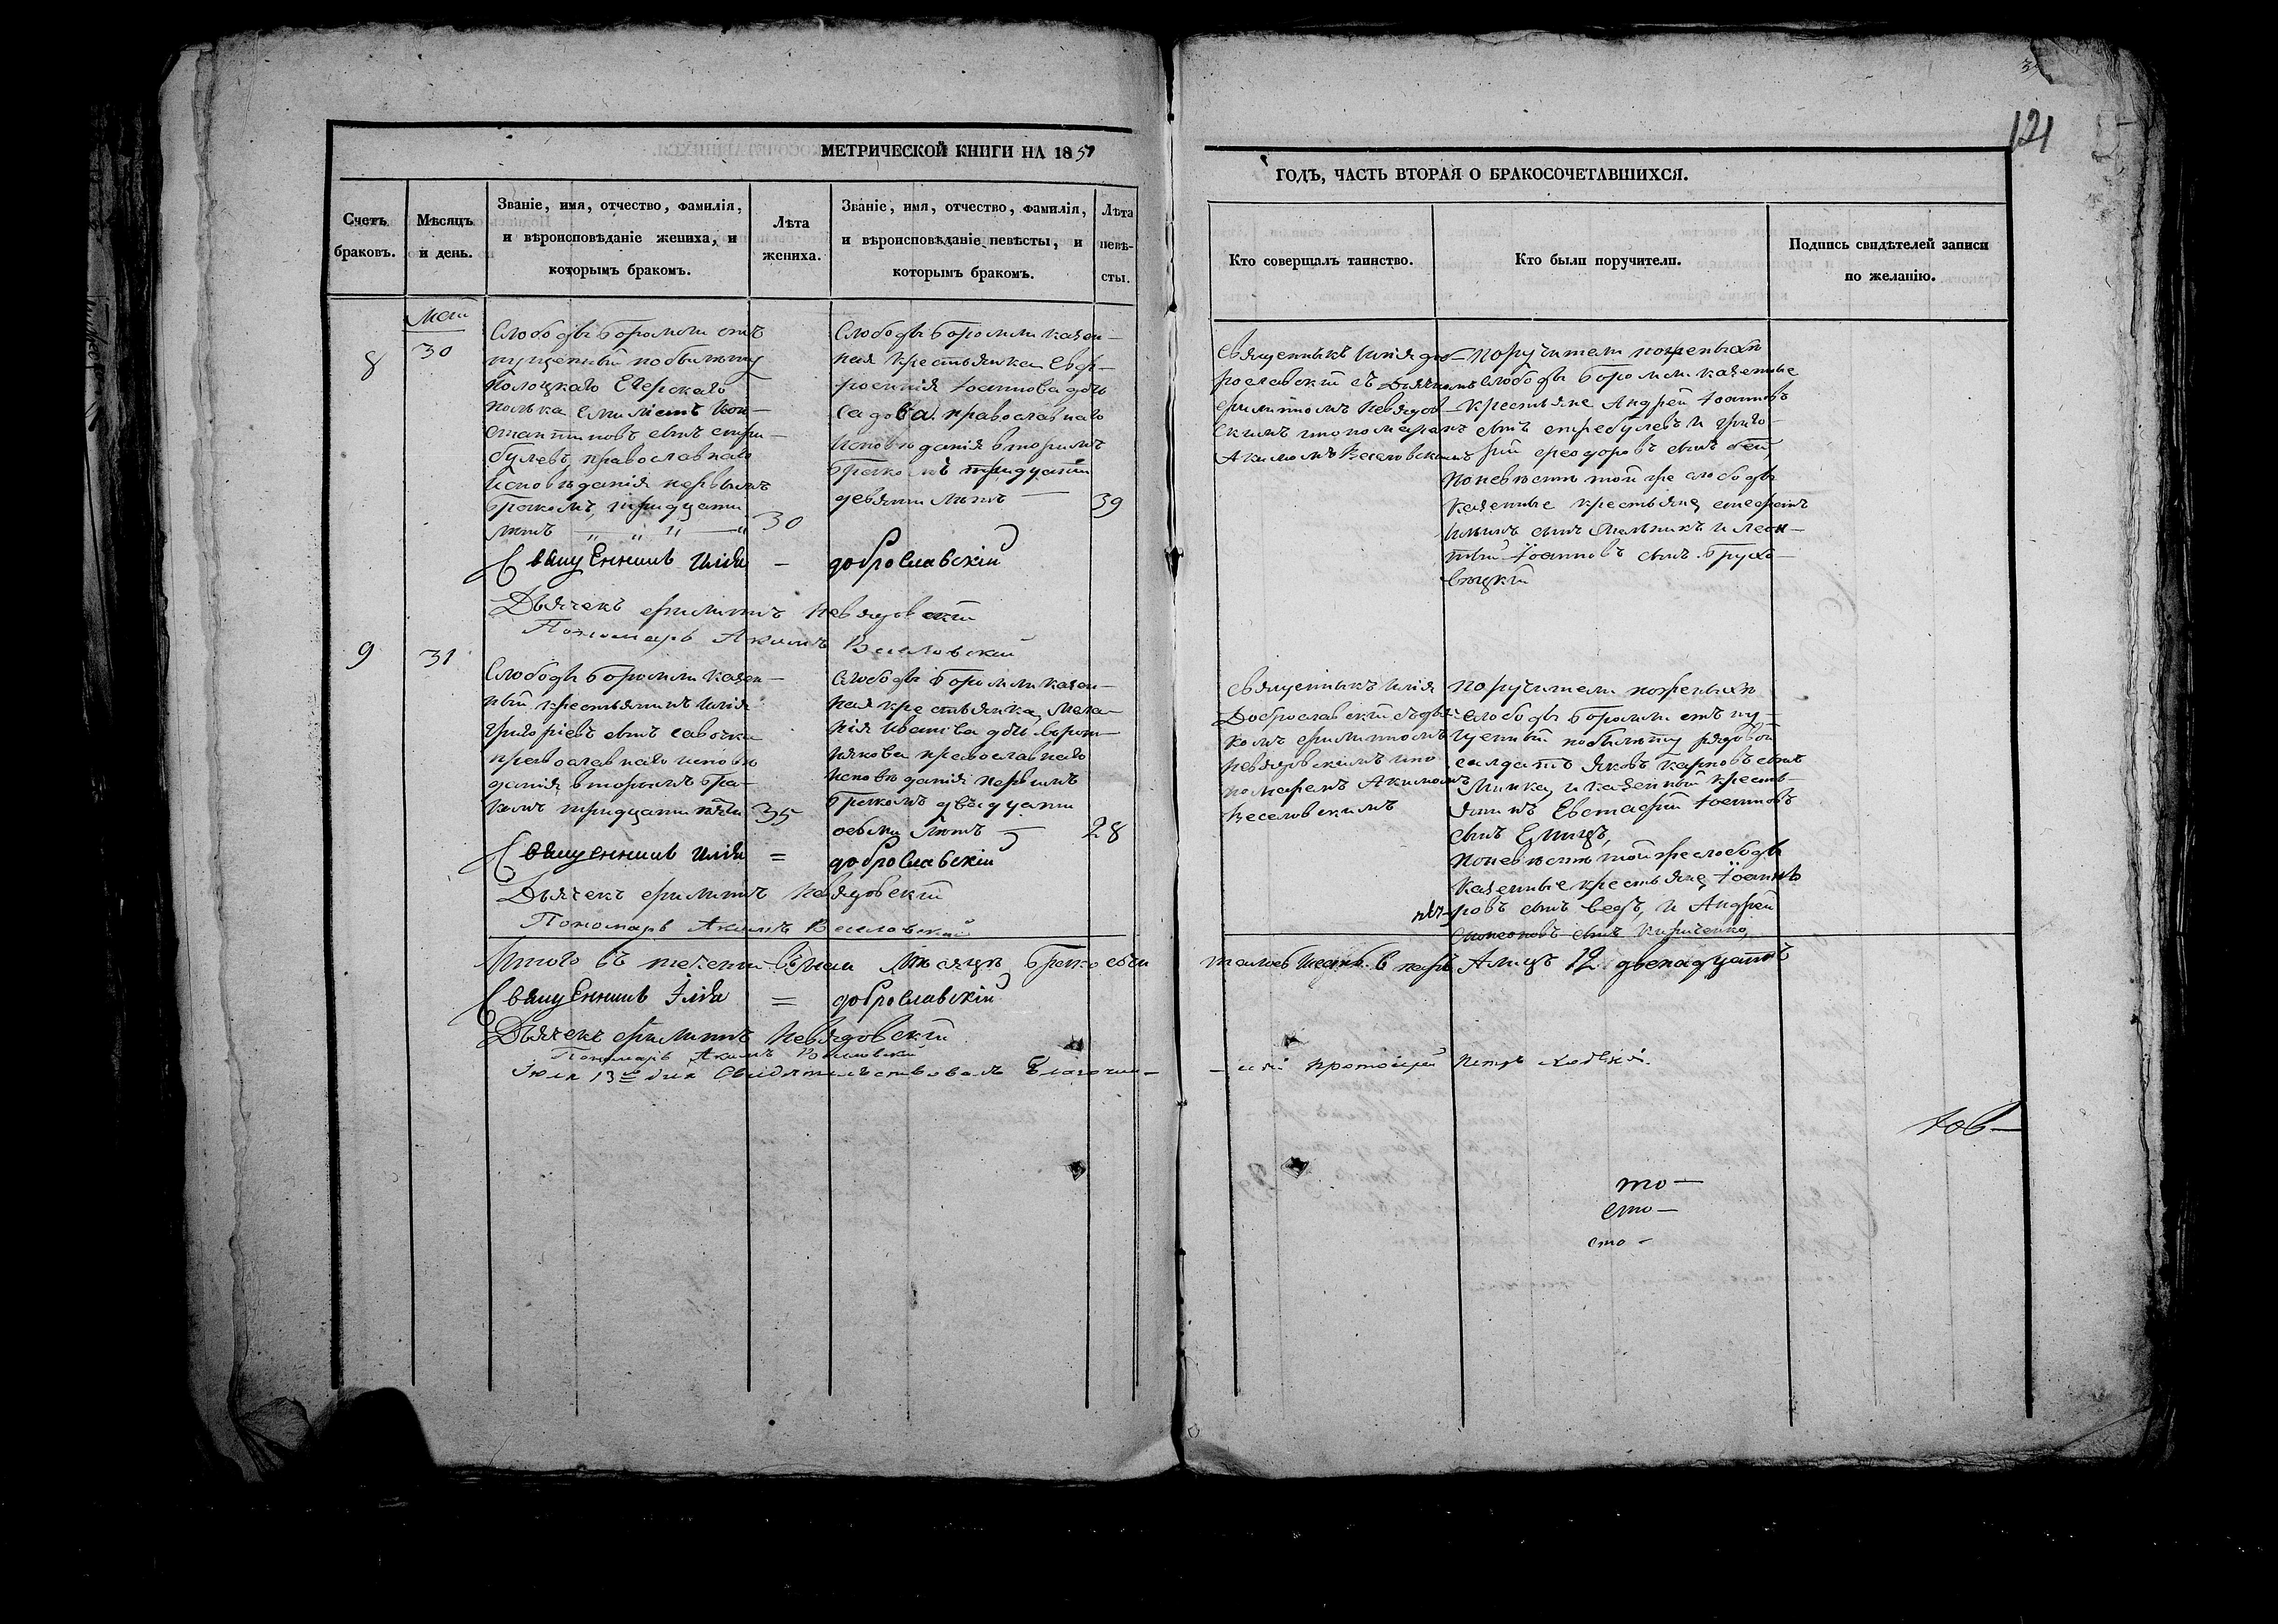 121
МЕТРИЧЕСКОЙ КНИГИ НА 1857
ГОДЪ, ЧАСТЬ ВТОРАЯ О БРАКОСОЧЕТАВШИХСЯ.
Счетъ
браковъ.
Мѣсяцъ
и день.
Званіе, имя, отчество, фамилія,
и вѣроисповѣданіе жениха, и
которымъ бракомъ.
Лѣта
жениха.
Званіе, имя, отчество, фамилія,
и вѣроисповѣданіе невѣсты, и
которымъ бракомъ.
Лѣта
невѣ-
сты.
Кто совершалъ таинство.
Кто были поручители.
Подпись свидѣтелей записи
по желанію.
8
Маія
30
Слободы Боромли от
пущенный побилету
Полоцкаго Егерскаго
полька Константиновъ сынъ
православнаго
исповѣданія первымъ
бракомъ, тридцати
лѣтъ 30
Слободы Боромли казен-
ная крестьянка Евф-
росинія Іоаннова дочь
Садова православнаго
исповѣданія вторымъ
бракомъ тридцати
девяти лѣтъ — 39
Священникъ Илія доб-
рославскій съ Дьячкомъ
Филиппомъ Невядов-
скимъ ипономаремъ
Акимомъ Веселовскимъ
Поручители поженихѣ
слободы Боромли казенные
крестьяне Андрей Іоанновъ
сынъ и Григо-
рій Феодоровъ сынъ
Поневѣстѣ той же слободы
казенные крестьяне Стефанъ
Ильинъ сынъ Мельникъ и Леон-
тій Іоанновъ сынъ Брухо-
вецкій
Священникъ Илія — доброславскій
Дьячекъ Филиппъ Невядовскій
Пономарь Акимъ Веселовскій
9
31
Слободы Боромли казен-
ный крестьянинъ Илія
Григоріевъ сынъ Савочка
православнаго исповѣ
данія вторымъ бра-
комъ тридцати пяти 35
Слободы Боромли казен-
ная крестьянка, Мела-
нія Иванова дочь Ворот-
някова православнаго
исповѣданія первымъ
бракомъ двадцати
осьми лѣтъ — 28
Священникъ Илія
Доброславскій съ дья-
комъ Филиппомъ
Невядовскимъ ипо
номаремъ Акимомъ
Веселовскимъ
Поручители поженихѣ
слободы Боромли отпу-
щенный побилету рядовой
солдатъ Яковъ Карповъ сынъ
Минка, и казенный кресть-
янинъ Евстафій Іоанновъ
сынъ Емицъ,
Поневѣстѣ той же слободы
казенные крестьяне, Іоаннъ
сынъ и Андрей
сынъ Кириченко,
Священникъ Илія = доброславскій
Дьячекъ Филиппъ Невядовскій
Пономарь Акимъ Веселовскій
Итого въ течени Маіи мѣсяцѣ бракосочи
12 двенадцать
Священникъ Ілія = доброславскій
Дьячекъ Филиппъ Невядовскій
Пономарь Акимъ Веселовскій
Іюля 13го дня Свидѣтельствовалъ Благочин-
ный протоіерей Петръ
то —
сто —
сто -